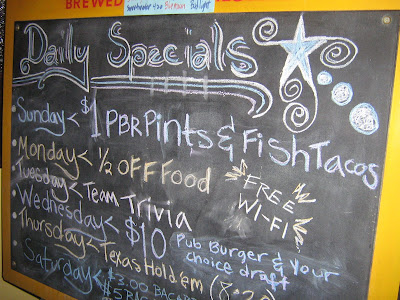 BREWED
Sweetwater 420 Stinson Bud Light
Daily Specials
Sunday < $1 PBR Pints & Fish Tacos
Monday < 1/2 OFF Food
FREE
WI-FI!
Tuesday < Team Trivia
Wednesday < $10 Pub Burger & your
choice draft
Thursday < Texas Hold'em (8:
Saturday < $3.00 BACARDI